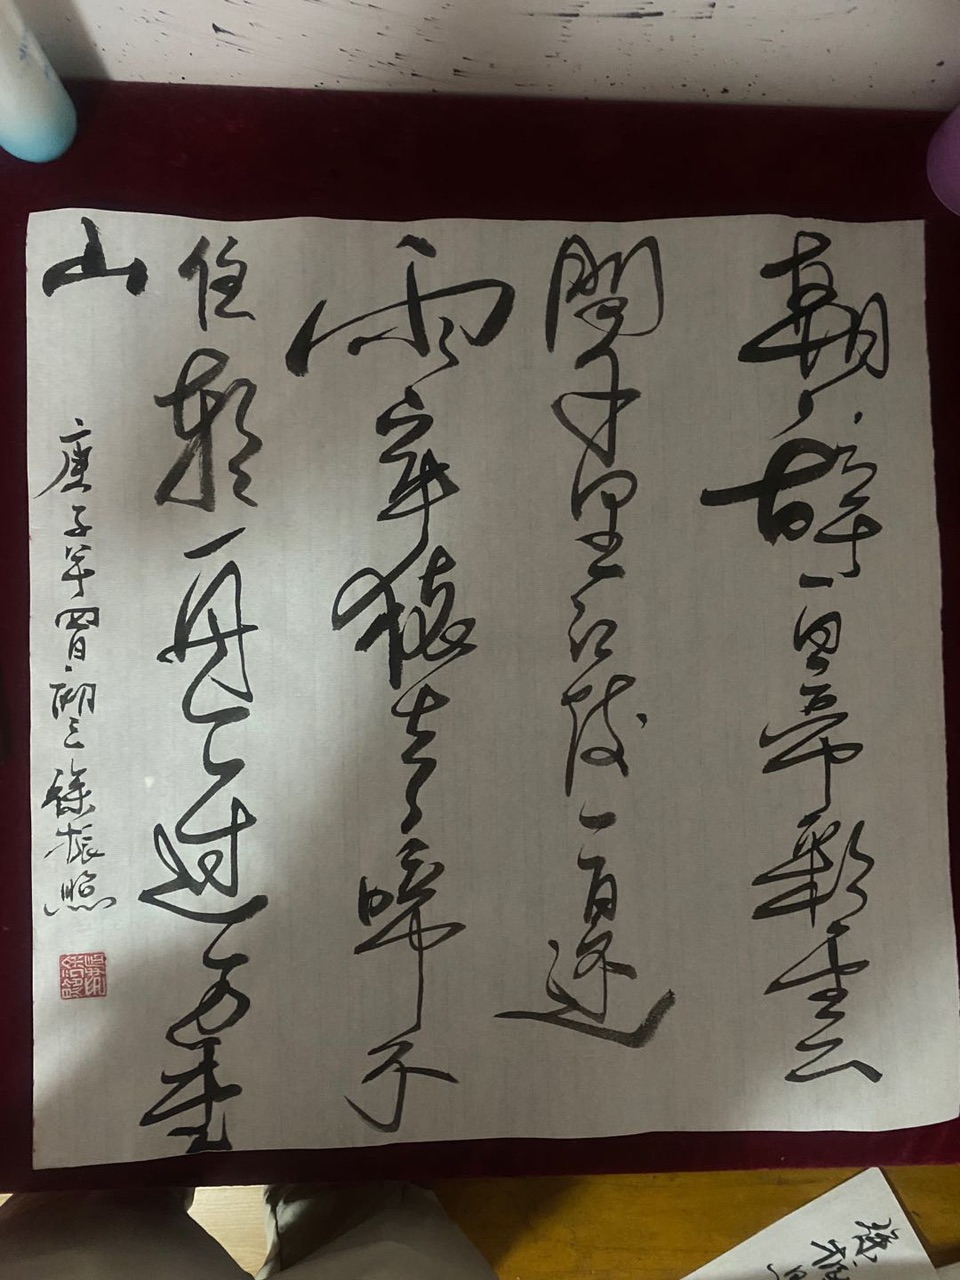 朝辭白帝彩雲
間千里江陵一日還
兩岸猿声啼不
住輕舟已過万重
山
庚子年 徐振照